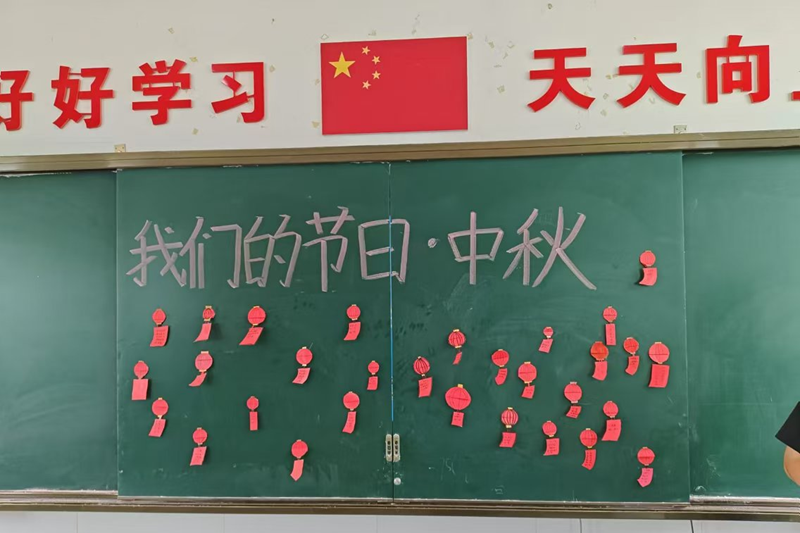 好好学习 天天向上
我们的节日·中秋